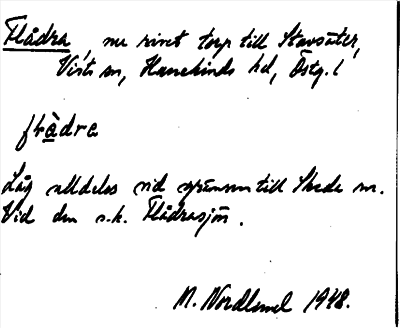 Flådra, nu rivet torp till Stavsäter,
Virts sn, Hanekinds hd, Östg. l
flàdra
Låg alldeles vid gränsen till Skeda sn.
Vid den s.k. Flådrasjön.
M. Nordlund 1948.